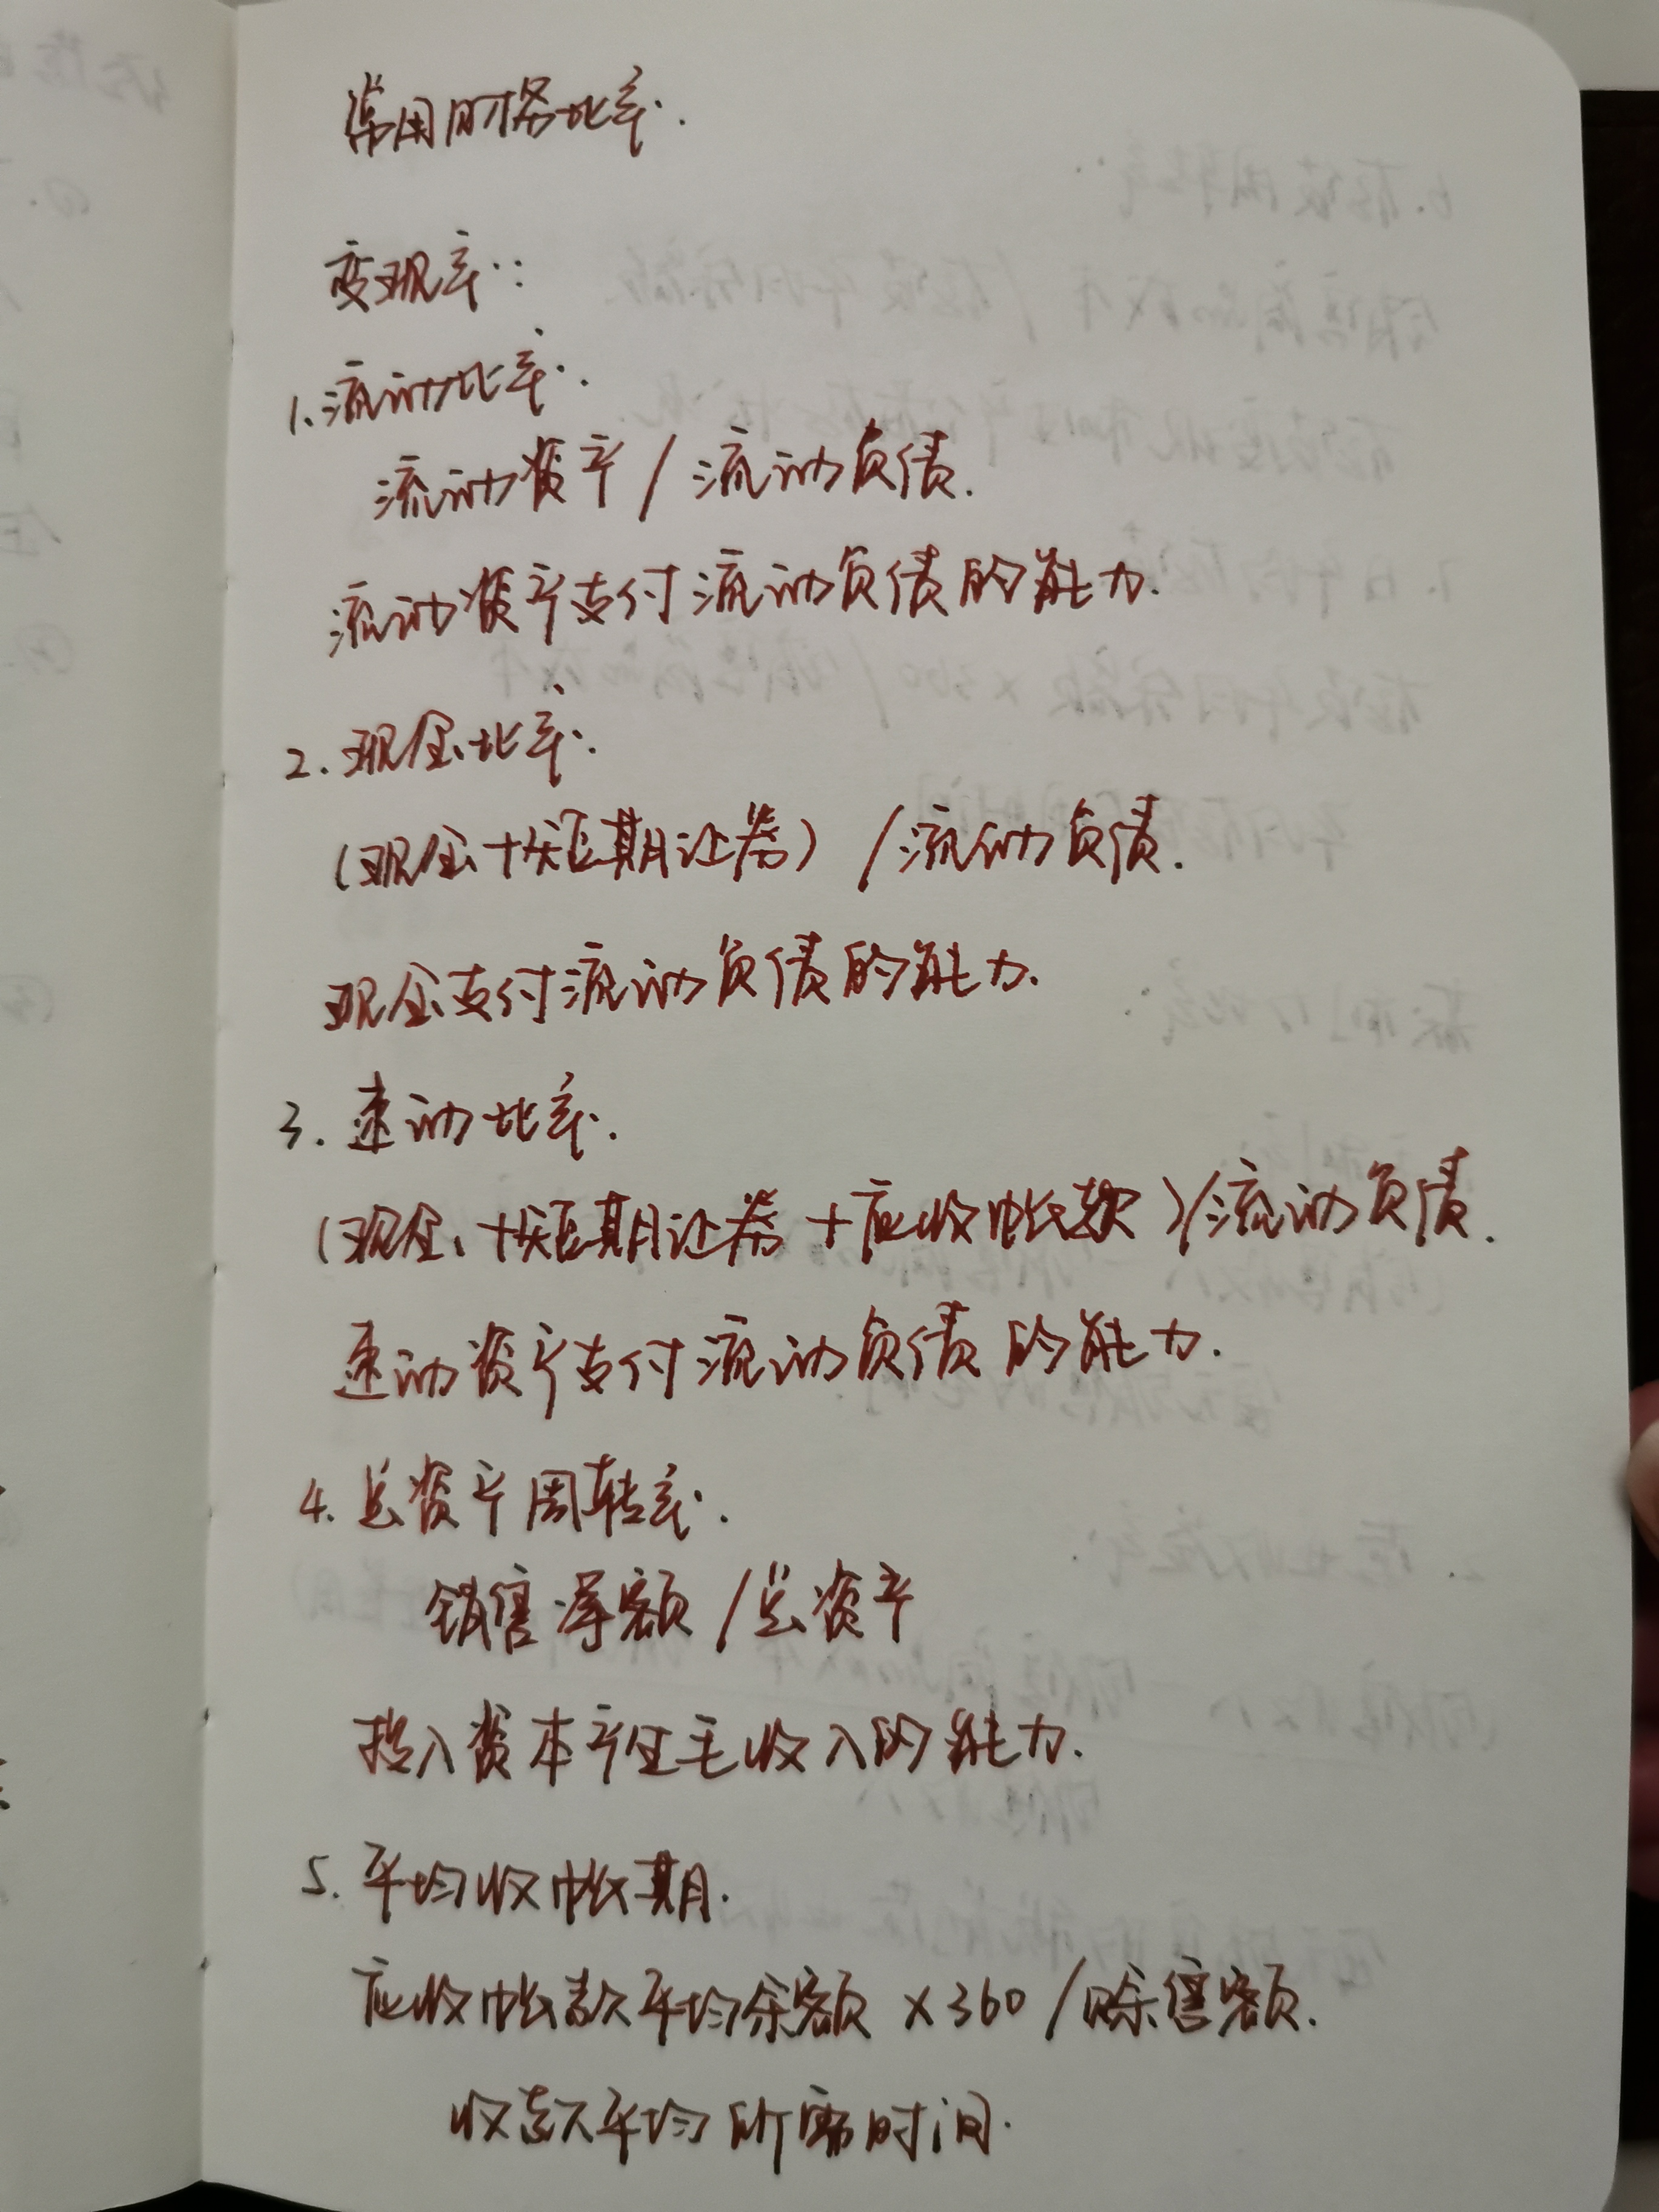 常用财务比率.
变现率:
1. 流动比率:
流动资产/流动负债.
流动资产支付流动负债的能力.
2. 现金比率:
(现金+短期证券)/流动负债.
现金支付流动负债的能力.
3. 速动比率.
(现金+短期证券+应收帐款)/流动负债.
速动资产支付流动负债的能力.
4. 总资产周转率.
销售净额/总资产
投入资本产生毛收入的能力.
5. 平均收帐期.
应收帐款平均余额×360/赊售额.
收款平均所需时间.